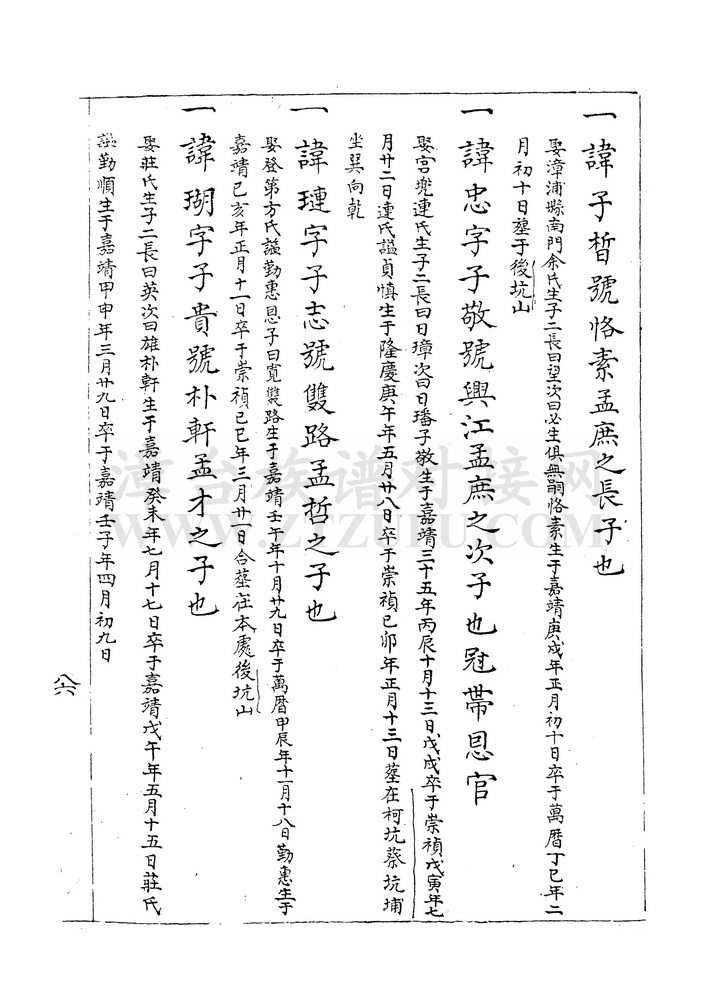 一諱子晳號恪素孟庶之長子也
娶漳浦縣南門余氏生子二長曰望次曰必生俱無嗣恪素生于嘉靖庚戌年正月初十日卒于萬曆丁巳年二
月初十日塟于後坑山
一諱忠字子敬號興江孟庶之次子也冠帶恩官
娶宫兠連氏生子二長曰日璋次曰日璠子敬生于嘉靖三十五年丙辰十月十三日戊戌卒于崇禎戊寅年七
月廿二日連氏謚貞慎生于隆慶庚午年五月廿八日卒于崇禎己卯年正月十三日塟在柯坑蔡坑埔
坐巽向乾
一諱璉字子志號雙路孟哲之子也
娶登第方氏謚勤惠恩子曰寬雙路生于嘉靖壬午年十月廿九日卒于萬曆甲辰年十一月十八日勤惠生于
嘉靖己亥年正月十一日卒于崇禎己巳年三月廿一日合塟在本處後坑山
一諱瑚字子貴號朴軒孟才之子也
娶莊氏生子二長曰英次曰雄朴軒生于嘉靖癸未年七月十七日卒于嘉靖戊午年五月十五日莊氏
謚勤順生于嘉靖甲申年三月廿九日卒于嘉靖壬子年四月初九日
八六
漳台族谱对接网
WWW.ZTZUPU.COM